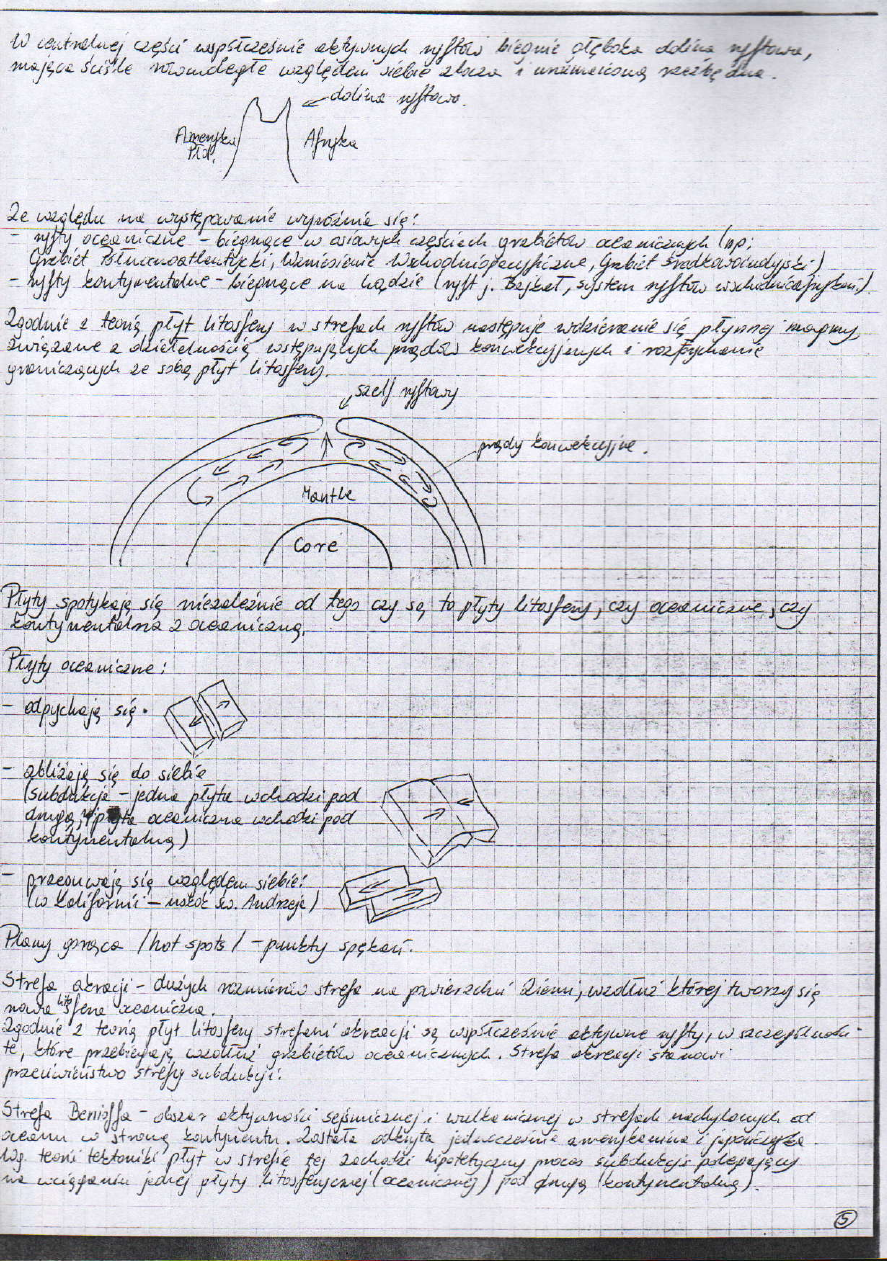 W centralnej części współcześnie aktywnych ryftów biegnie głęboka dolina ryftowa,
mająca ściśle równoległe względem siebie zbocza i urozmaiconą rzeźbę dna.
dolina ryftowa.
Ameryka Płd.
Afryka
Ze względu na występowanie wyróżnia się:
- ryfty oceaniczne - biegnące w osiowych częściach grzbietów oceanicznych (np:
Grzbiet Północnoatlantycki, Wzniesienie Wschodniopacyficzne, Grzbiet Środkowoindyjski)
- ryfty kontynentalne - biegnące na lądzie (ryft j. Bajkał, system ryftów wschodnioafrykań.)
Zgodnie z teorią płyt litosfery w strefach ryftów następuje wdzieranie się płynnej magmy,
związane z działalnością wstępujących prądów konwekcyjnych i rozpychanie
graniczących ze sobą płyt litosfery.
szelf ryftowy
prądy konwekcyjne.
Mantle
Core
Płyty spotykają się niezależnie od tego czy są to płyty litosfery, czy oceaniczne, czy
kontynentalna z oceaniczną.
Płyty oceaniczne:
- odpychają się.
- zbliżają się do siebie
(subdukcja - jedna płyta wchodzi pod
drugą, płyta oceaniczna wchodzi pod
kontynentalną)
- przesuwają się względem siebie:
(w Kalifornii - uskok św. Andrzeja)
Plamy gorąca /hot spots/ - punkty spękań.
Strefa akrecji - dużych rozmiarów strefa na powierzchni Ziemi, wzdłuż której tworzy się
nowa litosfera oceaniczna.
Zgodnie z teorią płyt litosfery strefami akreacji są współcześnie aktywne ryfty, w szczególności
te, które przebiegają wzdłuż grzbietów oceanicznych. Strefa akreacji stanowi
przeciwieństwo strefy subdukcji.
Strefa Benioffa - obszar aktywności sejsmicznej i wulkanicznej w strefach nachylonych od
oceanu w stronę kontynentu. Została odkryta jednocześnie amerykanina i japończyka.
Wg. teorii tektoniki płyt w strefie tej zachodzi hipotetyczny proces subdukcji polegający
na wciąganiu jednej płyty litosferycznej (oceanicznej) pod drugą (kontynentalną).
5